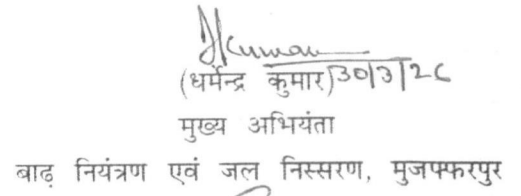 DKumar
(धर्मेन्द्र कुमार) 30/3/26
मुख्य अभियंता
बाढ़ नियंत्रण एवं जल निस्सरण, मुजफ्फरपुर